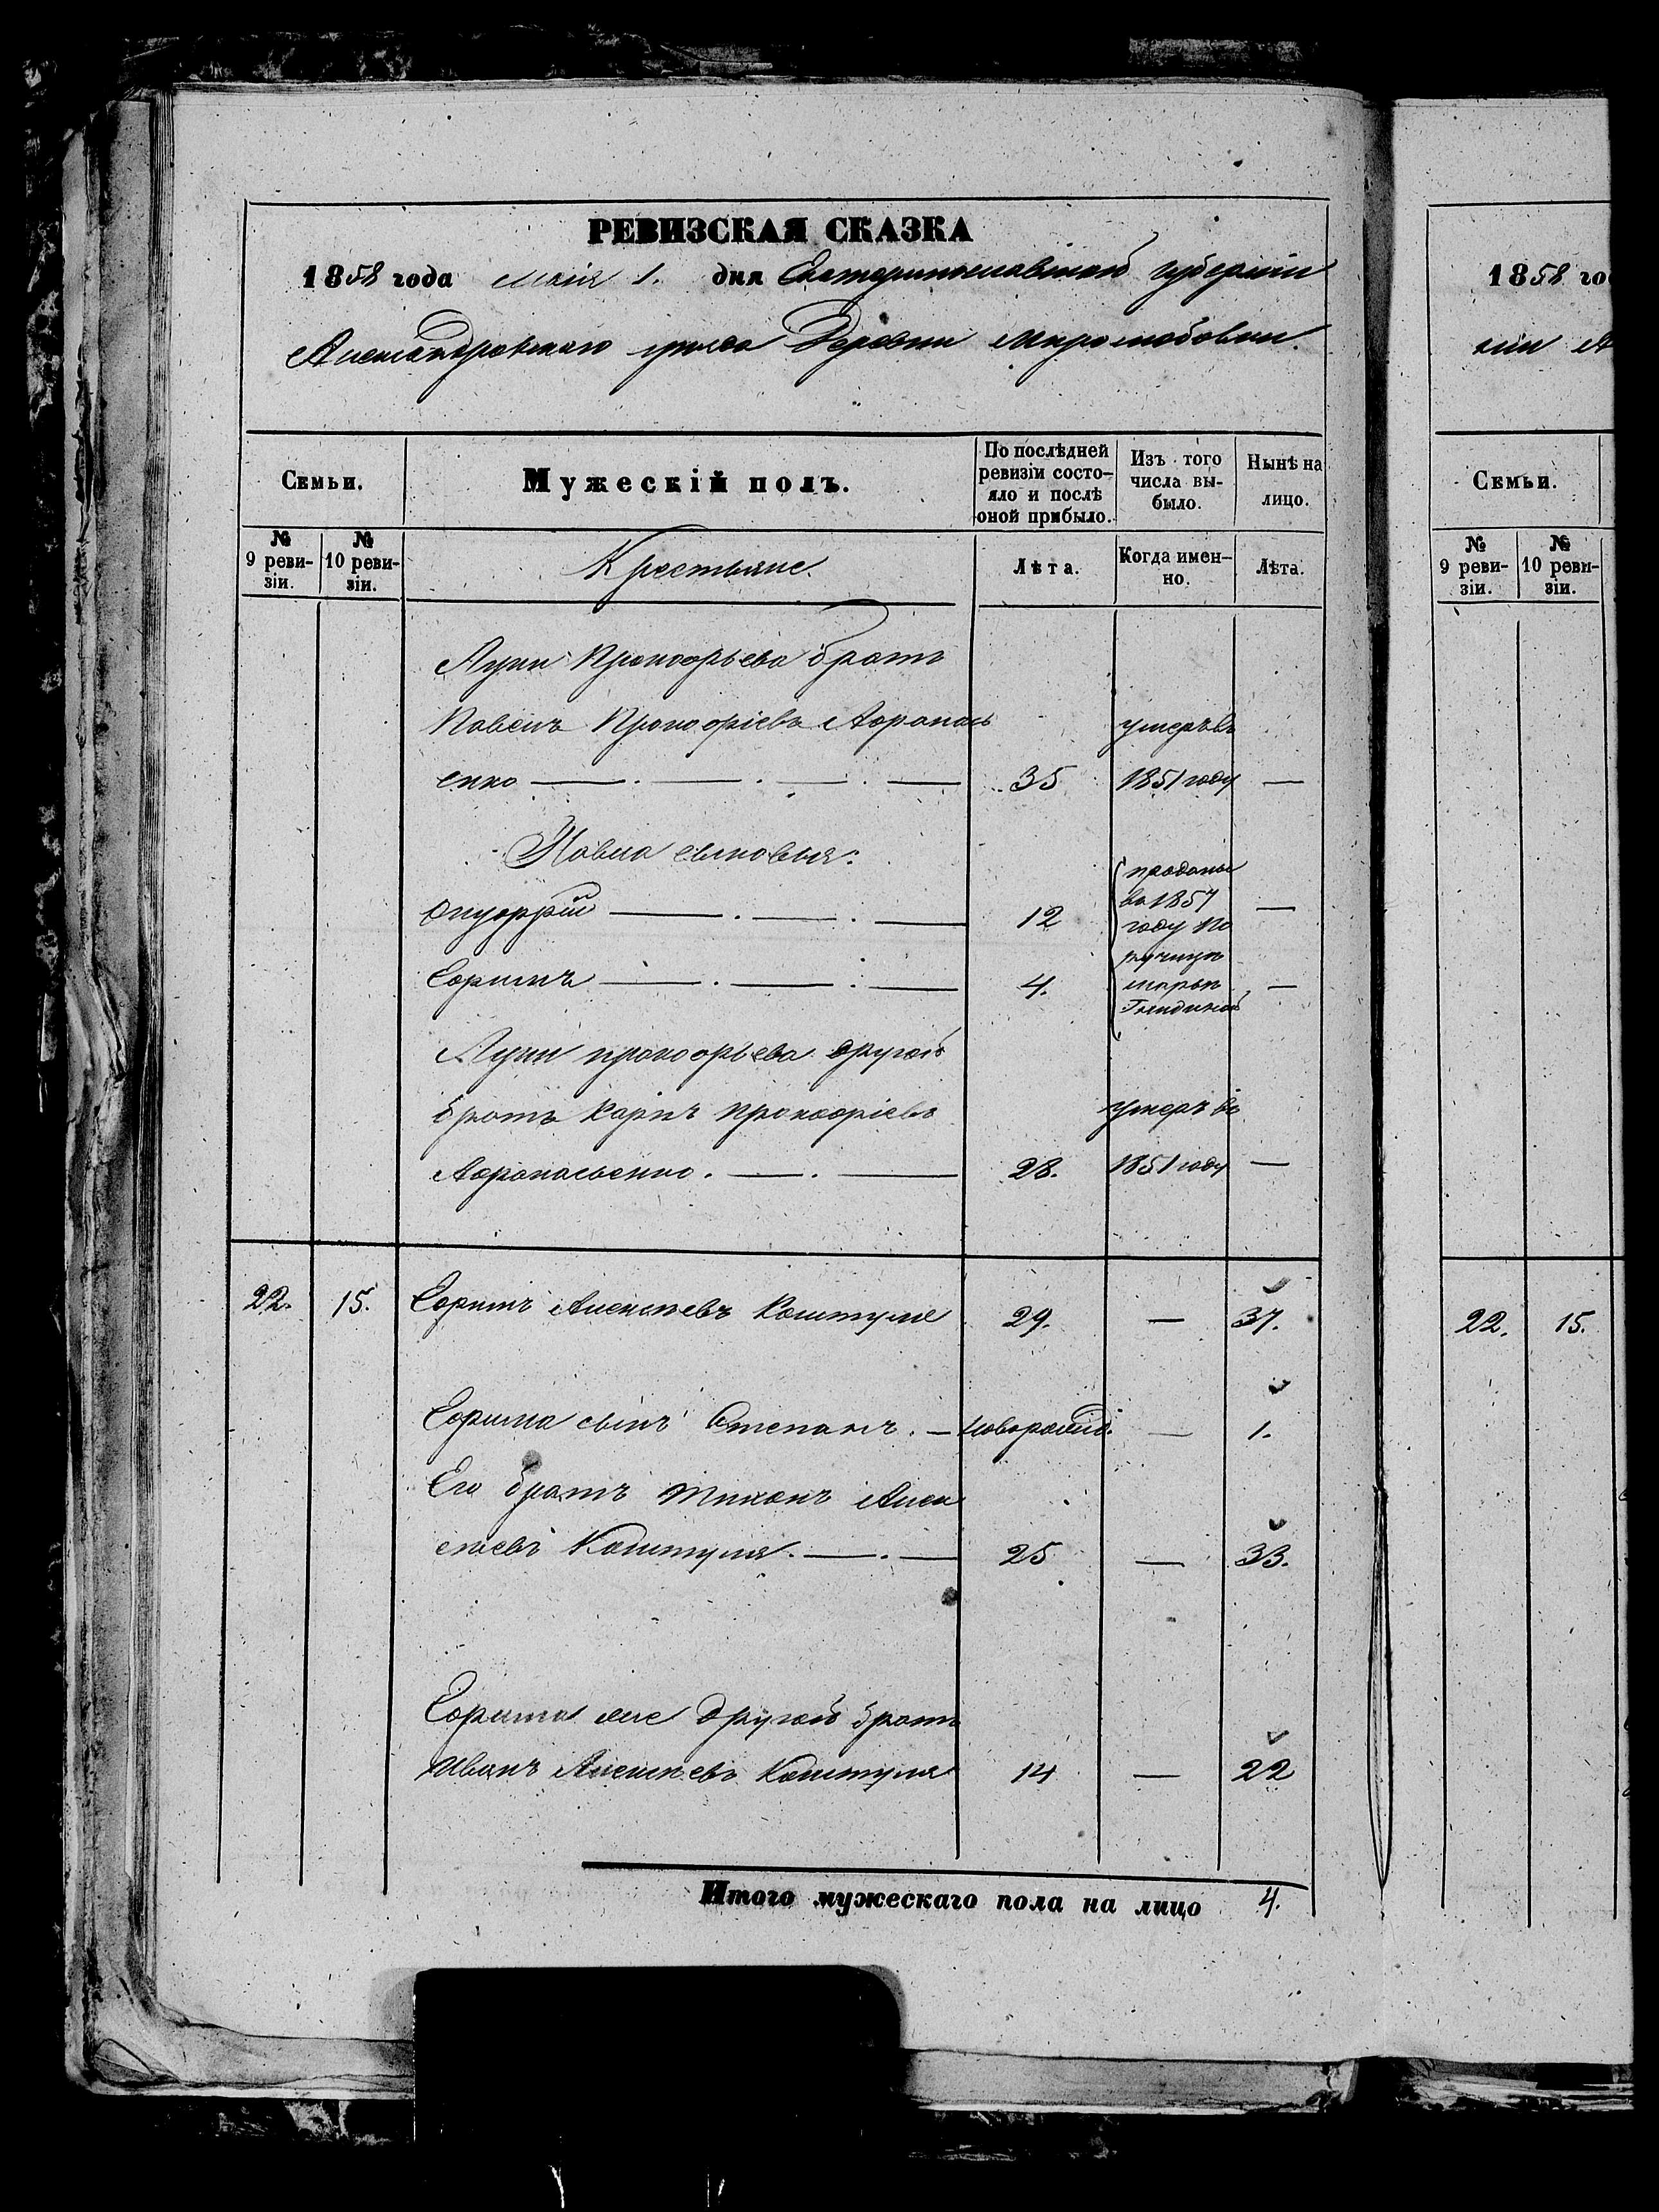 РЕВИЗСКАЯ СКАЗКА
1858 года Маія 1. дня Екатеринославской губерніи
Александровскаго уѣзда Деревни Миролюбовки.
Семьи.
Мужескій полъ.
По послѣдней ревизіи состо-
яло и послѣ
оной прибыло.
Изъ того
числа вы-
было.
Нынѣ на
лицо.
№
9 реви-
зіи.
№
10 реви-
зіи.
Крестьяне.
Лѣта.
Когда имен-
но.
Лѣта.
Луки Прокофьева братъ
Павелъ Прокофіевъ Афанась умеръ въ
енко — . — . — . — 35 1851 году —
Павла сыновья:
Онуфрій — . — . — 12 —
Ефимъ — . — : — 4. —
проданы
въ 1857
году По
ручицѣ
Марьѣ
Луки прокофьева другой
братъ Карпъ Прокофіевъ умеръ въ
Афанасьенко . — . — 28. 1851 году —
22. 15. Ефимъ Алексѣевъ Коштуля 29. — 37.
Ефима сынъ Степанъ . — новорожд. — 1.
Его братъ Тихонъ Алек
сѣевъ Коштуля . — . — 25 — 33.
Ефима же другой братъ
Иванъ Алексѣевъ Коштуля 14 — 22
Итого мужескаго пола на лицо 4.
1858 го
Семьи.
№
9 реви-
зіи.
№
10 реви-
зіи.
22. 15.